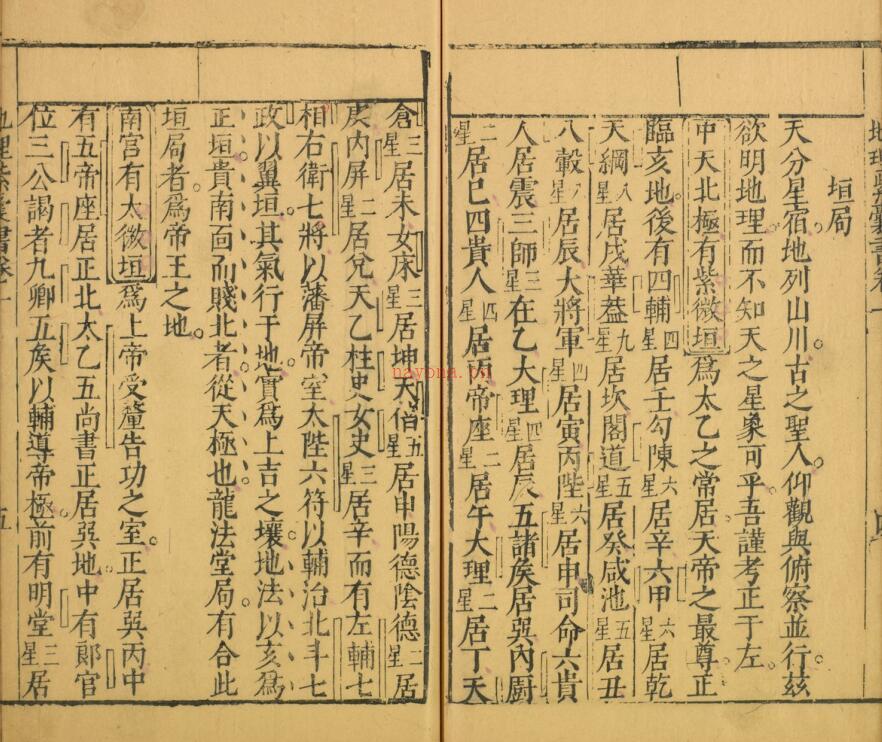 垣局
天分星宿地列山川古之聖人仰觀與俯察並行茲
欲明地理而不知天之星象可乎吾謹考正于左
中天北極有紫微垣為太乙之常居天帝之最尊正
臨亥地後有四輔四星居壬勾陳六星居辛六甲六星居乾
天綱八星居戌華葢九星居坎閣道五星居癸咸池五星居丑
八榖八星居辰大將軍四星居寅丙陛六星居申司命六貴
人居震三師三星在乙大理四星居辰五諸矦居巽內厨
二星居巳四貴人四星居丙帝座二星居午大理二星居丁天
倉三星居未女床三星居坤天俈五星居申陽德陰德二星居
庚內屏二星居兌天乙柱史女史三星居辛而有左輔七
相右衛七將以藩屏帝室太陛六符以輔治北斗七
政以翼垣其氣行于地實為上吉之壤地法以亥為
正垣貴南面而賤北者從天極也龍法堂局有合此
垣局者為帝王之地
南宮有太微垣為上帝受釐告功之室正居巽丙中
有五帝座居正北太乙五尚書正居巽地中有郎官
位三公謁者九卿五矦以輔導帝極前有明堂三星居
地理紫囊書卷一
五
nayona.cn